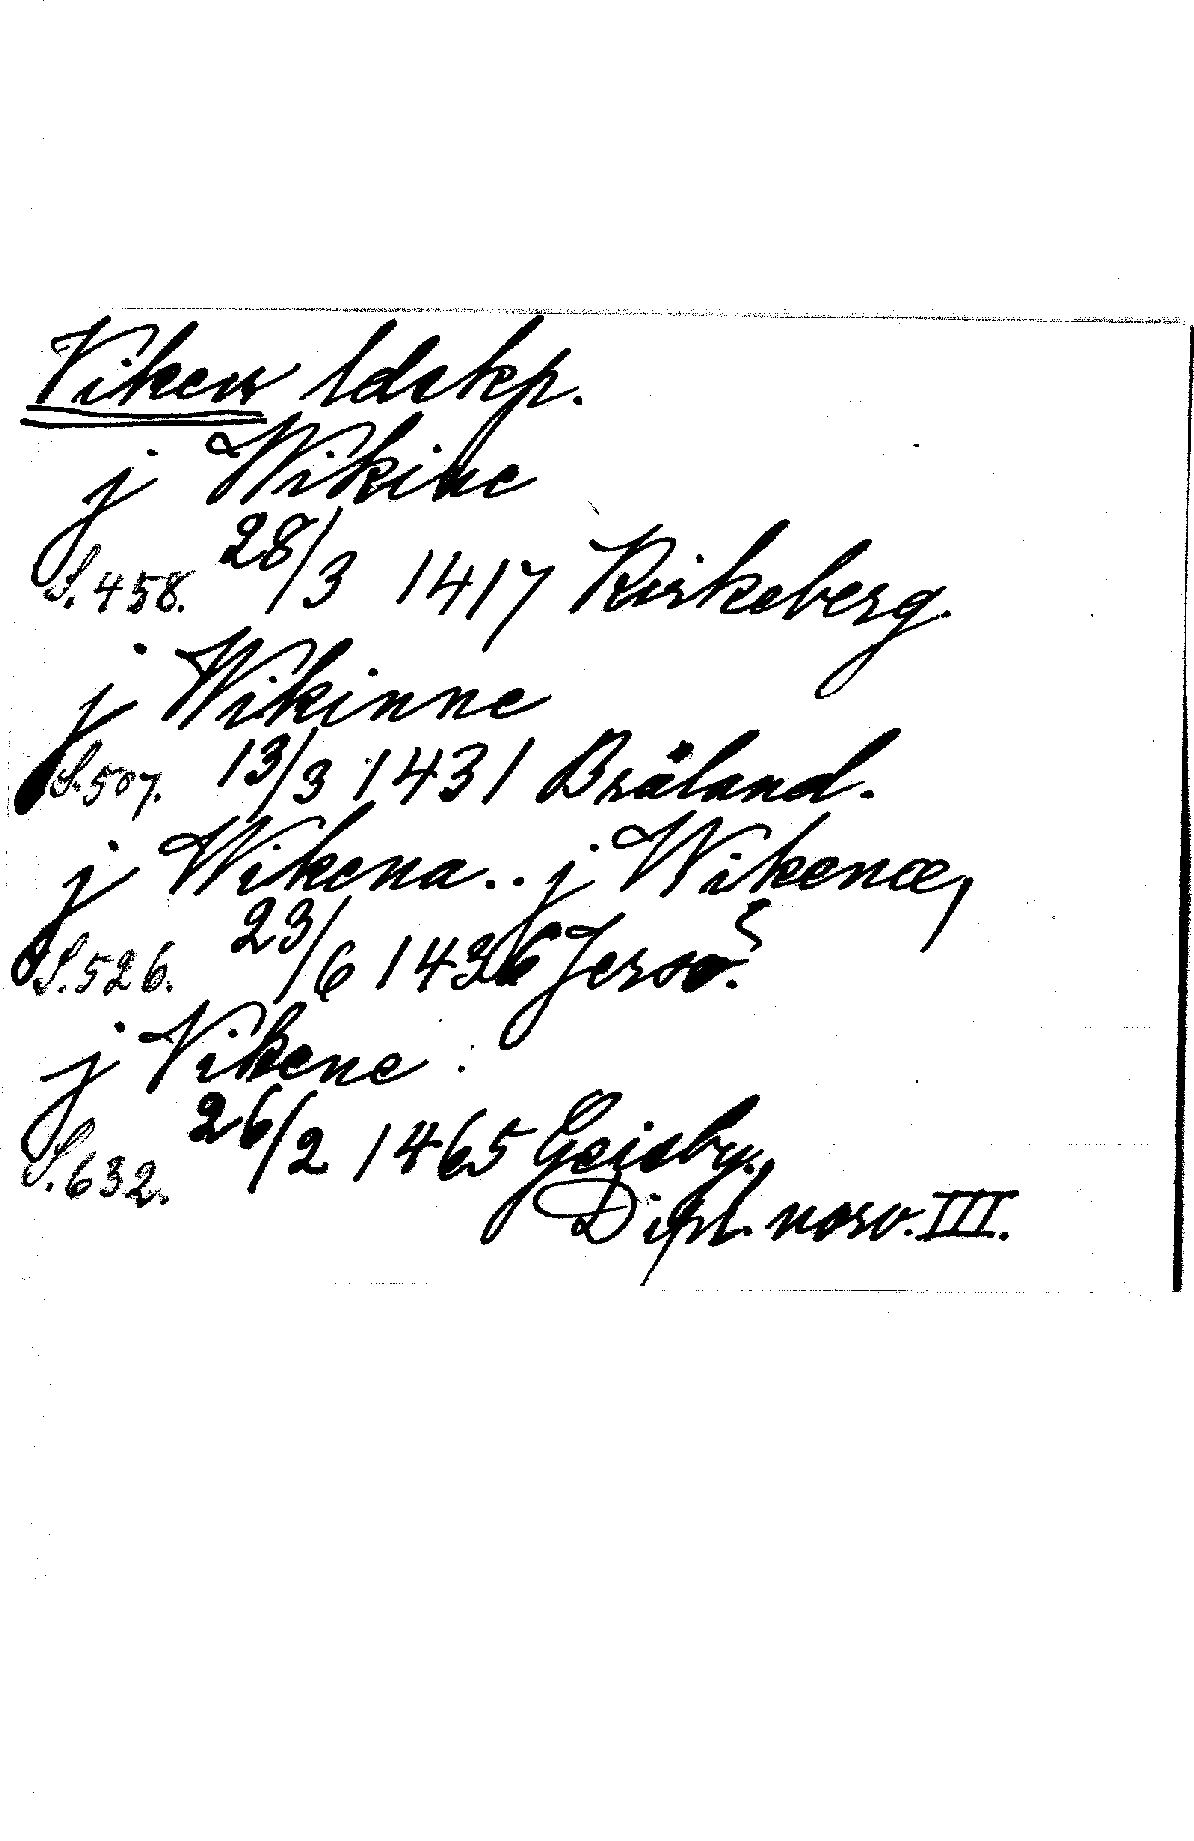 Viken ldskp.
j Wikine
S. 458. 28/3 1417 Kirkeberg.
j Wikinne
S. 507. 13/3 1431 Bråland.
j Wikena.. j Wikenæ,
S. 526. 23/6 1436 Jerso?
j Vikene
S. 632. 26/2 1465 Geisby.
Dipl. norv. III.